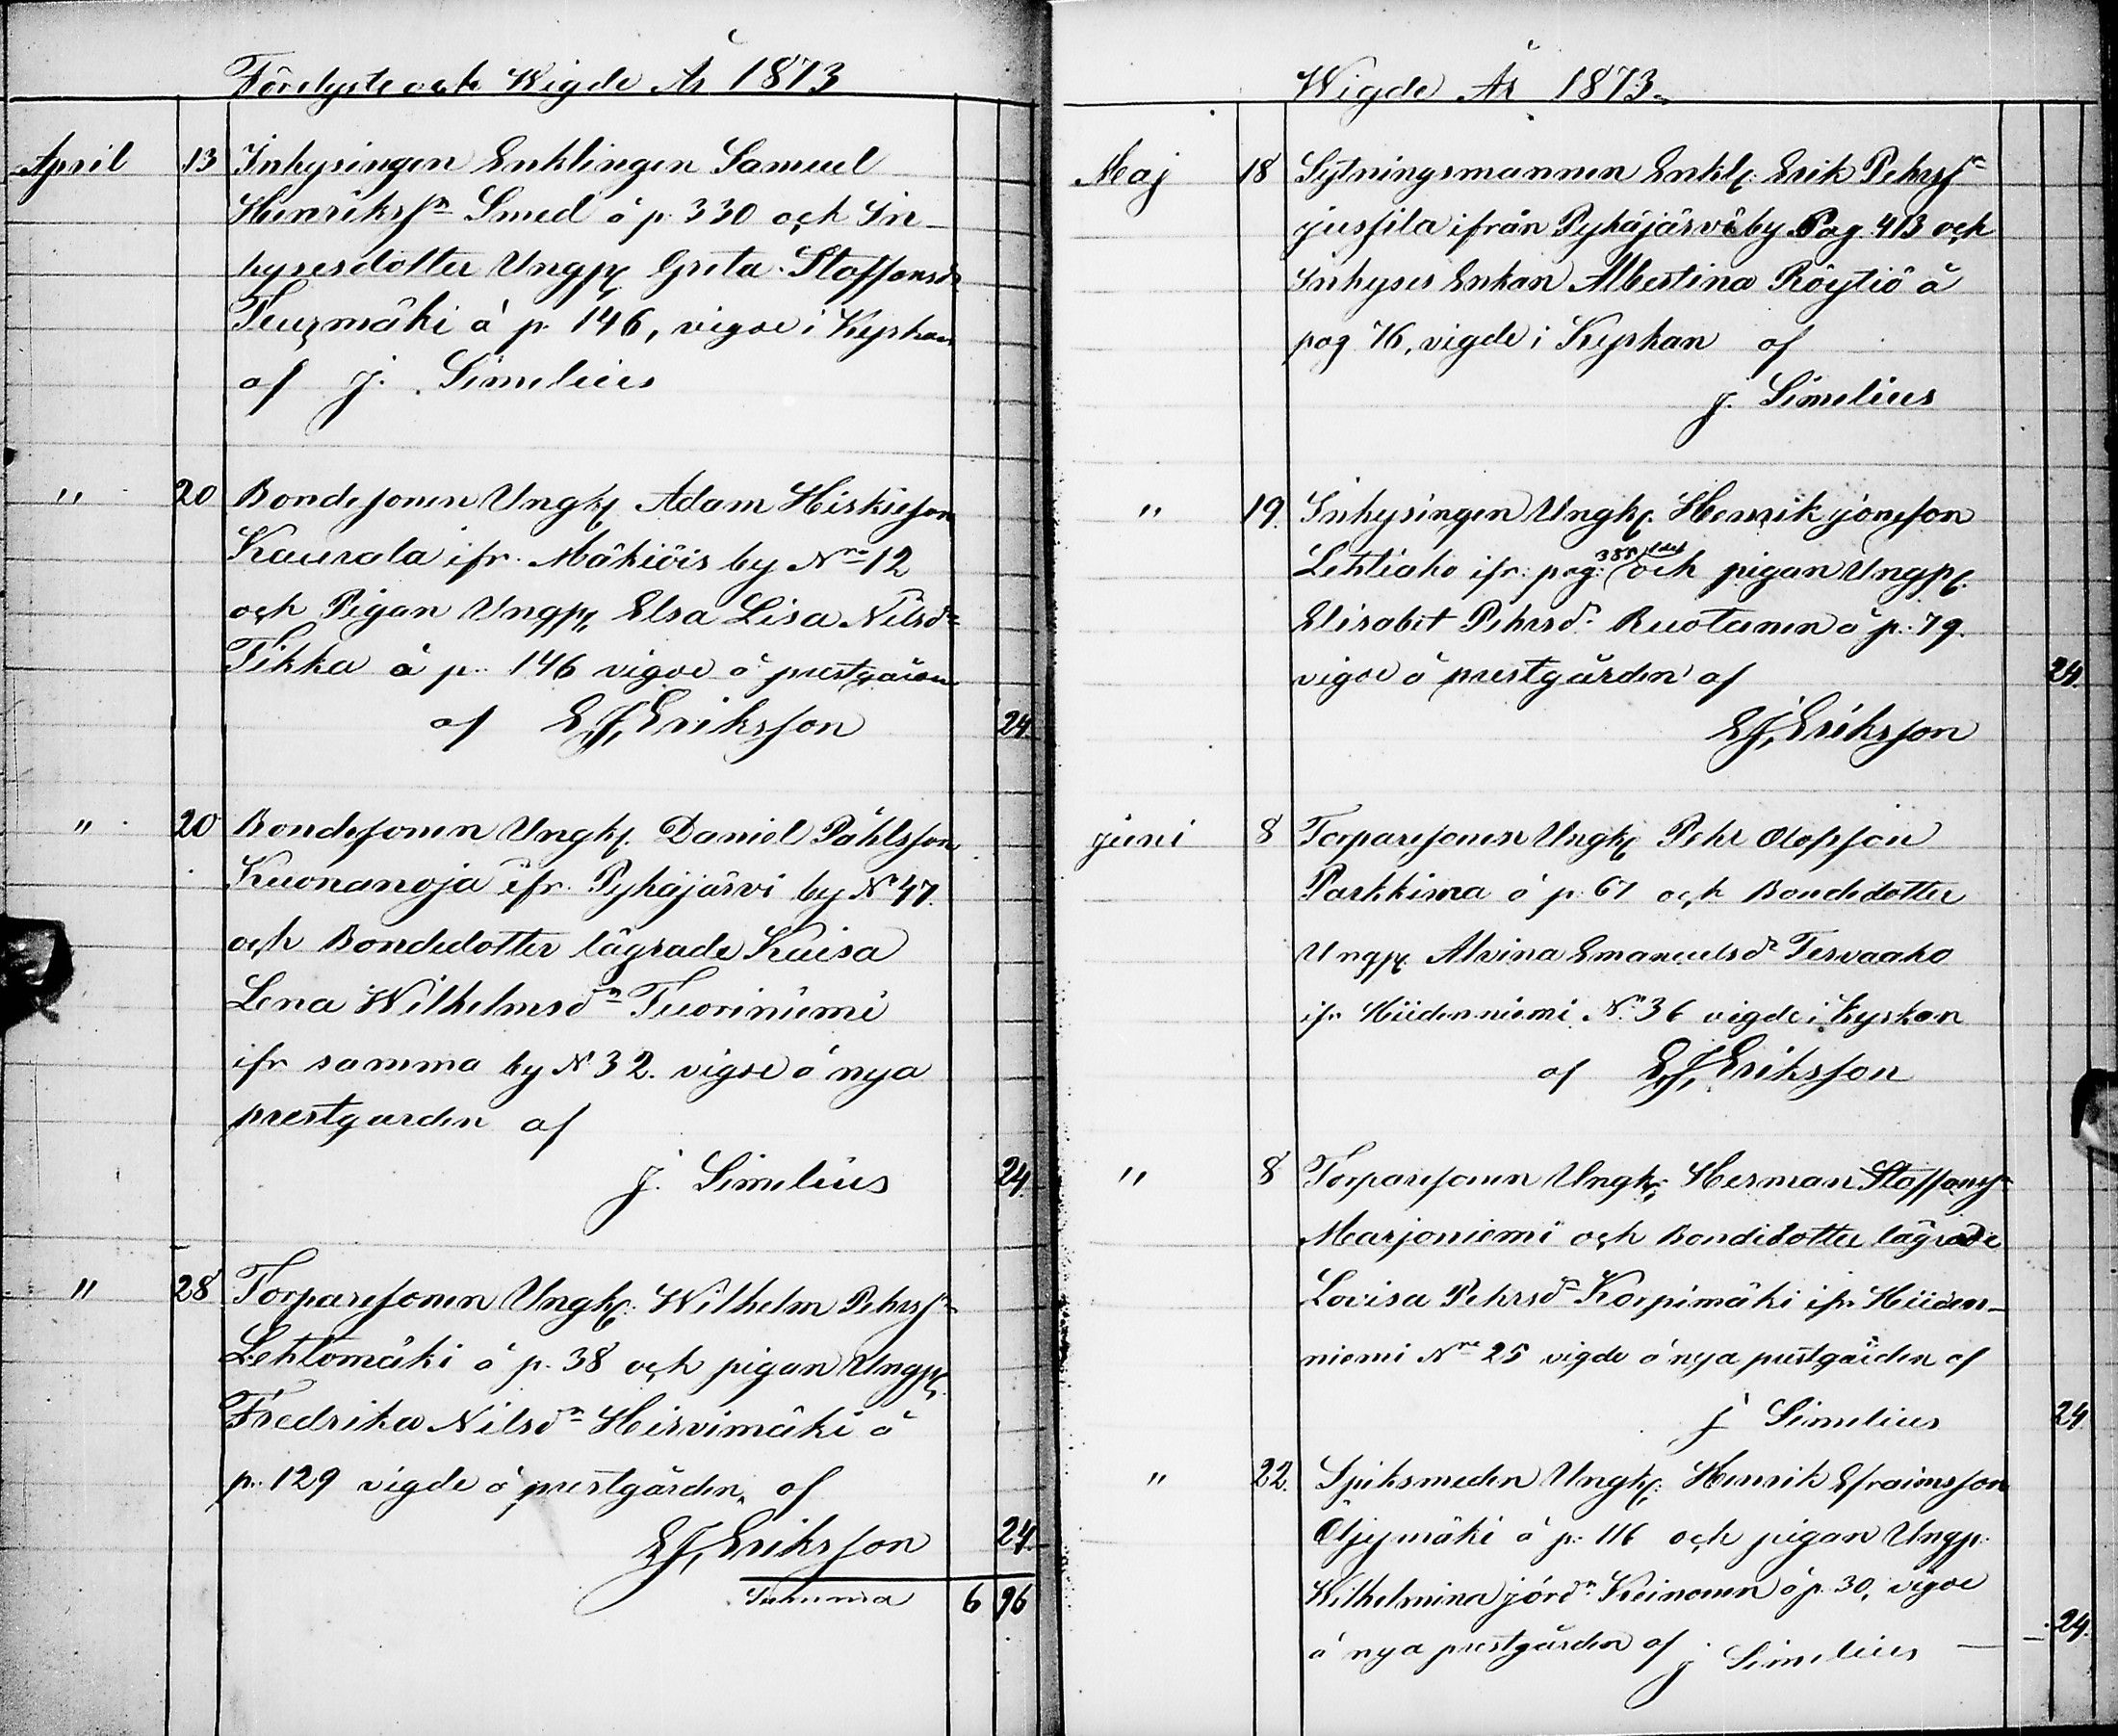 Förelyste och Wigde År 1873
April 13 Inhysingen Enklingen Samuel
Henriksſn Smed å p. 330 och In-
hysesdotter Ungpq Greta Staffansdr
å p. 146, vigde i Kyrkan
af J. Simelius
" 20 Bondesonen Ungkſ Adam Hiskiesson
Kaurala ifr. Mäkiöis by Nro 12
och Pigan Ungpq Elsa Lisa Nilsdr
Tikka å p. 146 vigde å prestgården
af E.J. Eriksson 24.
" 20 Bondesonen Ungkſ. Daniel Påhlsson
Kuonanoja ifr. Pyhäjärvi by N 47.
och Bondedotter lägrade Kaisa
Lena Wilhelmsdr Tuoriniemi
ifr samma by N 32. vigde å nya
prestgården af
J. Simelius 24.
" 28 Torparesonen Ungkſ. Wilhelm Pehrsſn
Lehtomäki å p. 38 och pigan Ungpq.
Fredrika Nilsdr Hirvimäki å
p. 129 vigde å prestgården, af
E.J. Eriksson 24.
Summa 6 96
Wigde År 1873.
Maj 18 Sytningsmannen Enklſ. Erik Pehrsſn
Jussila ifrån Pyhäjärvi by Pag. 413 och
Inhyses Enkan Albertina Röytiö å
pag 76, vigde i Kyrkan af
J. Simelius
" 19. Inhysingen Ungkſ. Henrik Jönsson
Lehtiaho ifr: pag: 388 och pigan Ungpq.
Elisabet Pehrsdr Ruotanen å p. 79.
vigde å prestgården af 24.
E.J. Eriksson
Juni 8 Torparesonen Ungkſ Pehr Olofsson
Parkkima å p. 67 och Bondedotter
Ungpq. Alvina Emanuelsdr Tervaaho
ifr Hiidenniemi No 36 vigde i Kyrkan
af E.J. Eriksson
" 8 Torparesonen Ungkſ. Herman Staffansſn
Marjoniemi och Bondedotter lägrade
Lovisa Pehrsdr Korpimäki ifr Hiiden-
niemi Nro 25 vigde å nya prestgården af
J Simelius 24
" 22. Spiksmeden Ungkſ. Henrik Efraimsson
Öljymäki å p. 116 och pigan Ungp.
Wilhelmina Jördr Keinonen å p. 30, vigde
å nya prestgården af J Simelius 24.